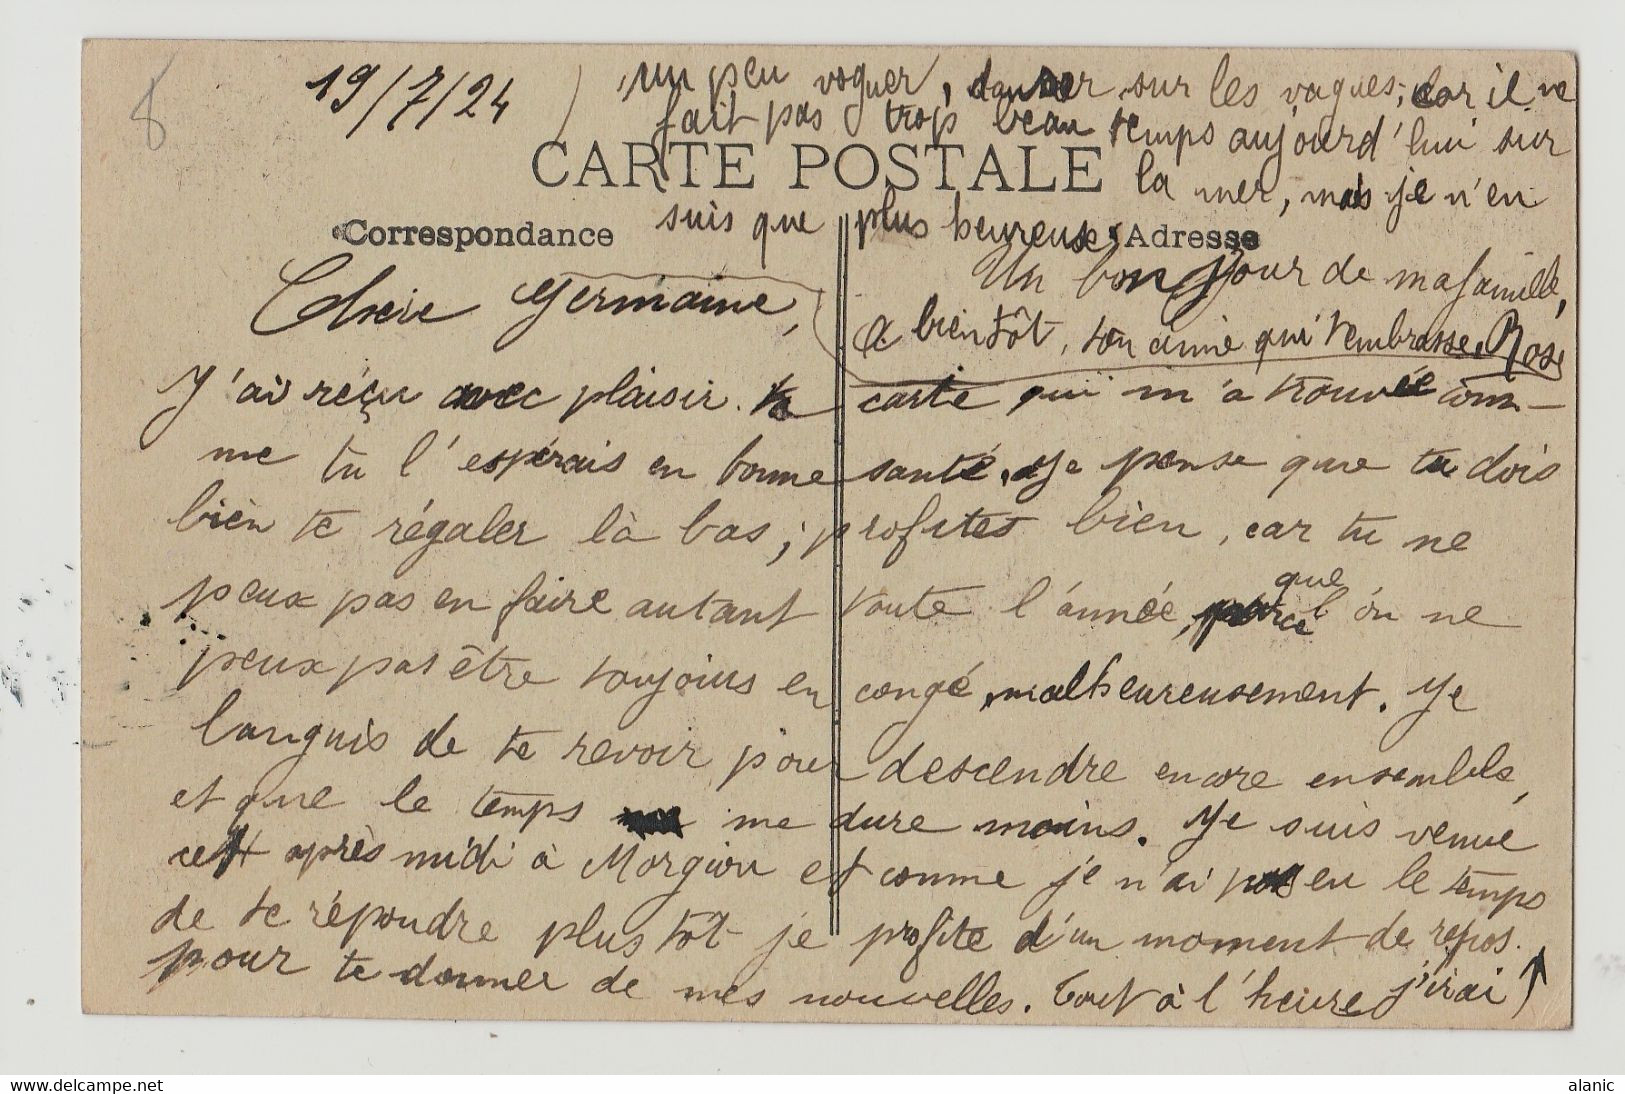 8
19/7/24
CARTE POSTALE
Correspondance
Adresse
Chère Germaine,
J'ai réçu avec plaisir ta carte qui m'a trouvée com-
me tu l'espérais en bonne santé. Je pense que tu dois
bien te régaler là bas; profites bien, car tu ne
peux pas en faire autant toute l'année, parce que l'ón ne
peux pas être toujours en congé, malheureusement. Je
languis de te revoir pour descendre encore ensemble,
et que le temps me dure moins. Je suis venue
cet après midi à Morgiou et comme je n'ai pas eu le temps
de te répondre plus tôt je profite d'un moment de repos.
pour te donner de mes nouvelles. Tout à l'heure j'irai
un peu voguer, danser sur les vagues, car il ne
fait pas trop beau temps aujourd'hui sur
la mer, mais je n'en
suis que plus heureuse.
Un bonjour de ma famille,
a bientôt, ton amie qui t'embrasse. Rose
delcampe.net
alanic